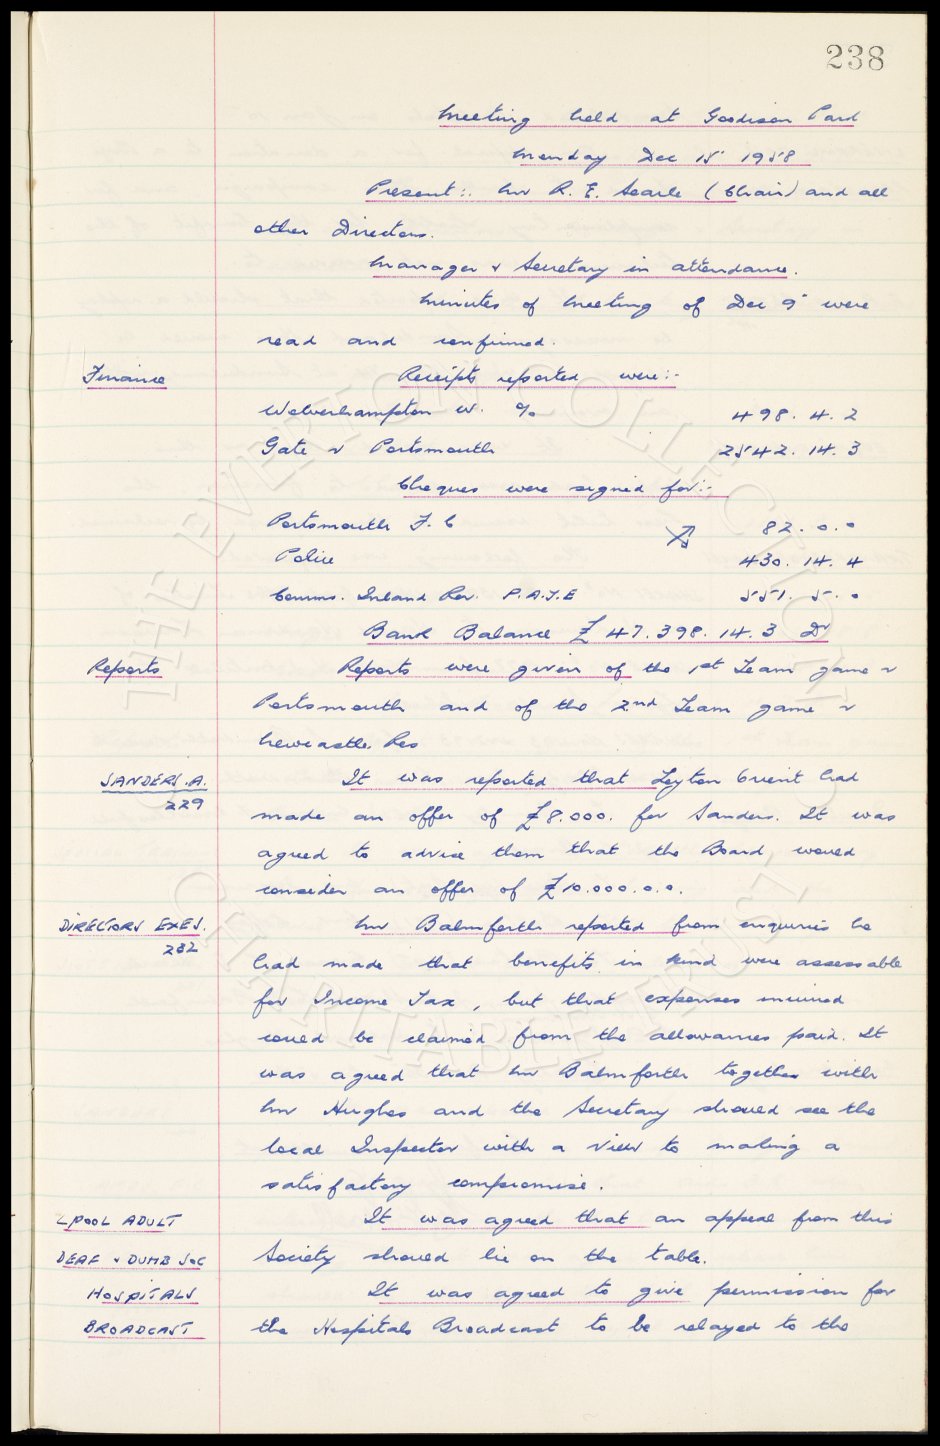 238
Meeting held at Goodison Park
Monday Dec 15 1958
Present:- Mr R. E. Searle (Chair) and all
other Directors.
Manager & Secretary in attendance.
Minutes of Meeting of Dec 9 were
read and confirmed.
Finance Receipts reported were:-
Wolverhampton W. % 498. 4. 2
Gate v Portsmouth 2542. 14. 3
Cheques were signed for:-
Portsmouth F. C 82. 0. 0
Police 430. 14. 4
Comms. Inland Rev. P.A.Y.E 551. 5. 0
Bank Balance £47.398.14.3 Dr
Reports Reports were given of the 1st Team game v
Portsmouth and of the 2nd Team game v
Newcastle Res
SANDERS. A. It was reported that Leyton Orient had
229 made an offer of £8.000. for Sanders. It was
agreed to advise them that the Board would
consider an offer of £10.000.0.0.
DIRECTORS EXES. Mr Balmforth reported from enquiries he
232 had made that benefits in kind were assessable
for Income Tax, but that expenses incurred
could be claimed from the allowances paid. It
was agreed that Mr Balmforth together with
Mr Hughes and the Secretary should see the
local Inspector with a view to making a
satisfactory compromise.
LPOOL ADULT It was agreed that an appeal from this
DEAF & DUMB SOC Society should lie on the table.
HOSPITALS It was agreed to give permission for
BROADCAST the Hospitals Broadcast to be relayed to the
THE EVERTON COLLECTION
CHARITABLE TRUST